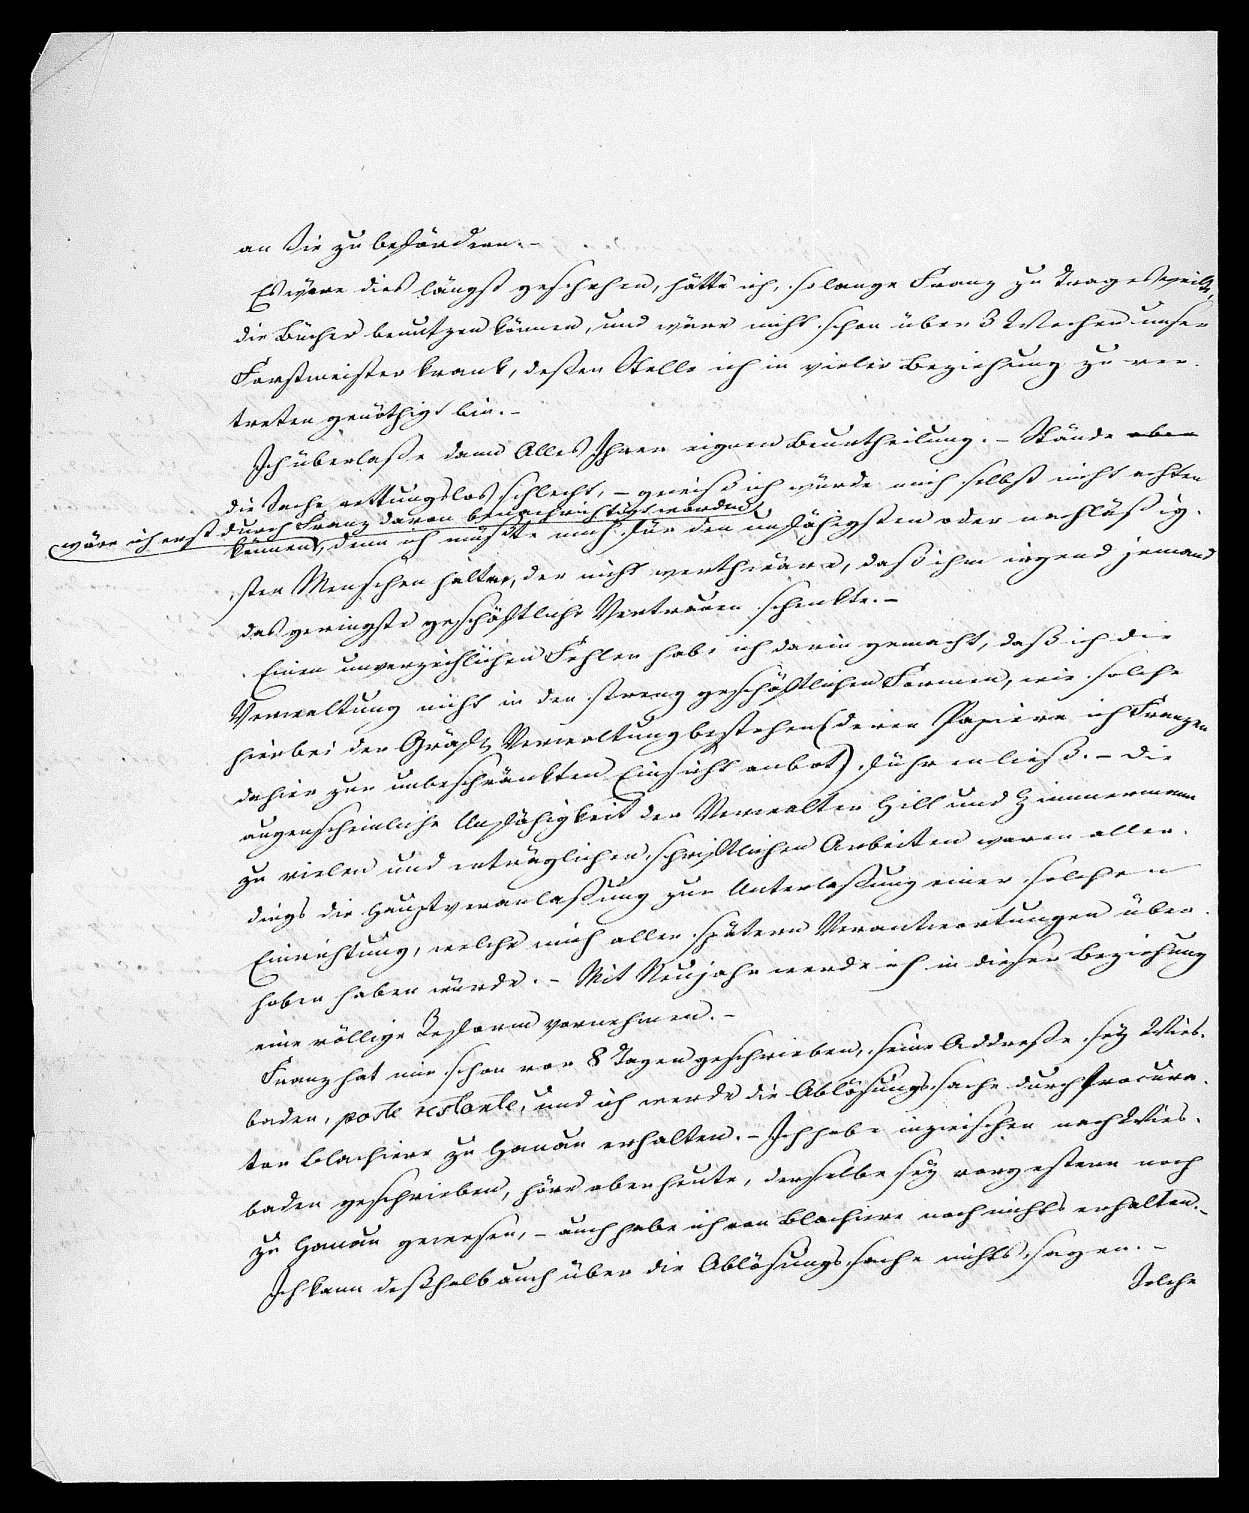 an Sie zu befördern. –
Es wäre dies längst geschehen, hätte ich, solange Franz zu Trages weilte,
die Bücher benutzen können, und wäre nicht schon über 3 Wochen unser
Forstmeister krank, deßen Stelle ich in vieler Beziehung zu ver-
treten genöthigt bin. –
Ich überlaße dann Alles Ihrer eignen Beurtheilung. – Stände aber
die Sache rettungslos schlecht, – gewiß ich würde mich selbst nicht achten
wäre ich erst durch Franz davon benachrichtigt worden,
können, denn ich müßte mich für den unfähigsten oder nachläßig-
sten Menschen halten, der nicht werth wäre, daß ihm irgend jemand
das geringste geschäftliche Vertrauen schenkte. –
Einen unverzeihlichen Fehler habe ich darin gemacht, daß ich die
Verwaltung nicht in den streng geschäftlichen Formen, wie solche
hier bei der Gräfl. Verwaltung bestehen (deren Papiere ich Franzen
dahier zur unbeschränkten Einsicht anbot) führen ließ. – Die
augenscheinliche Unfähigkeit der Verwalter Hill und Zimmermann
zu vielen und erträglichen schriftlichen Arbeiten waren aller-
dings die Hauptveranlaßung zur Unterlaßung einer solchen
Einrichtung, welche mich aller spätern Verantwortungen über-
hoben haben würde. – Mit Neujahr werde ich in dieser Beziehung
eine völlige Reform vornehmen. –
Franz hat mir schon vor 8 Tagen geschrieben, seine Addreße sey Wies-
baden, poste restante, und ich werde die Ablösungssache durch Procura-
tor Blachiere zu Hanau erhalten. – Ich habe inzwischen nach Wies-
baden geschrieben, höre aber heute, derselbe sey vorgestern noch
zu Hanau gewesen, – auch habe ich von Blachiere noch nichts erhalten. –
Ich kann deßhalb auch über die Ablösungssache nichts sagen. –
Solche